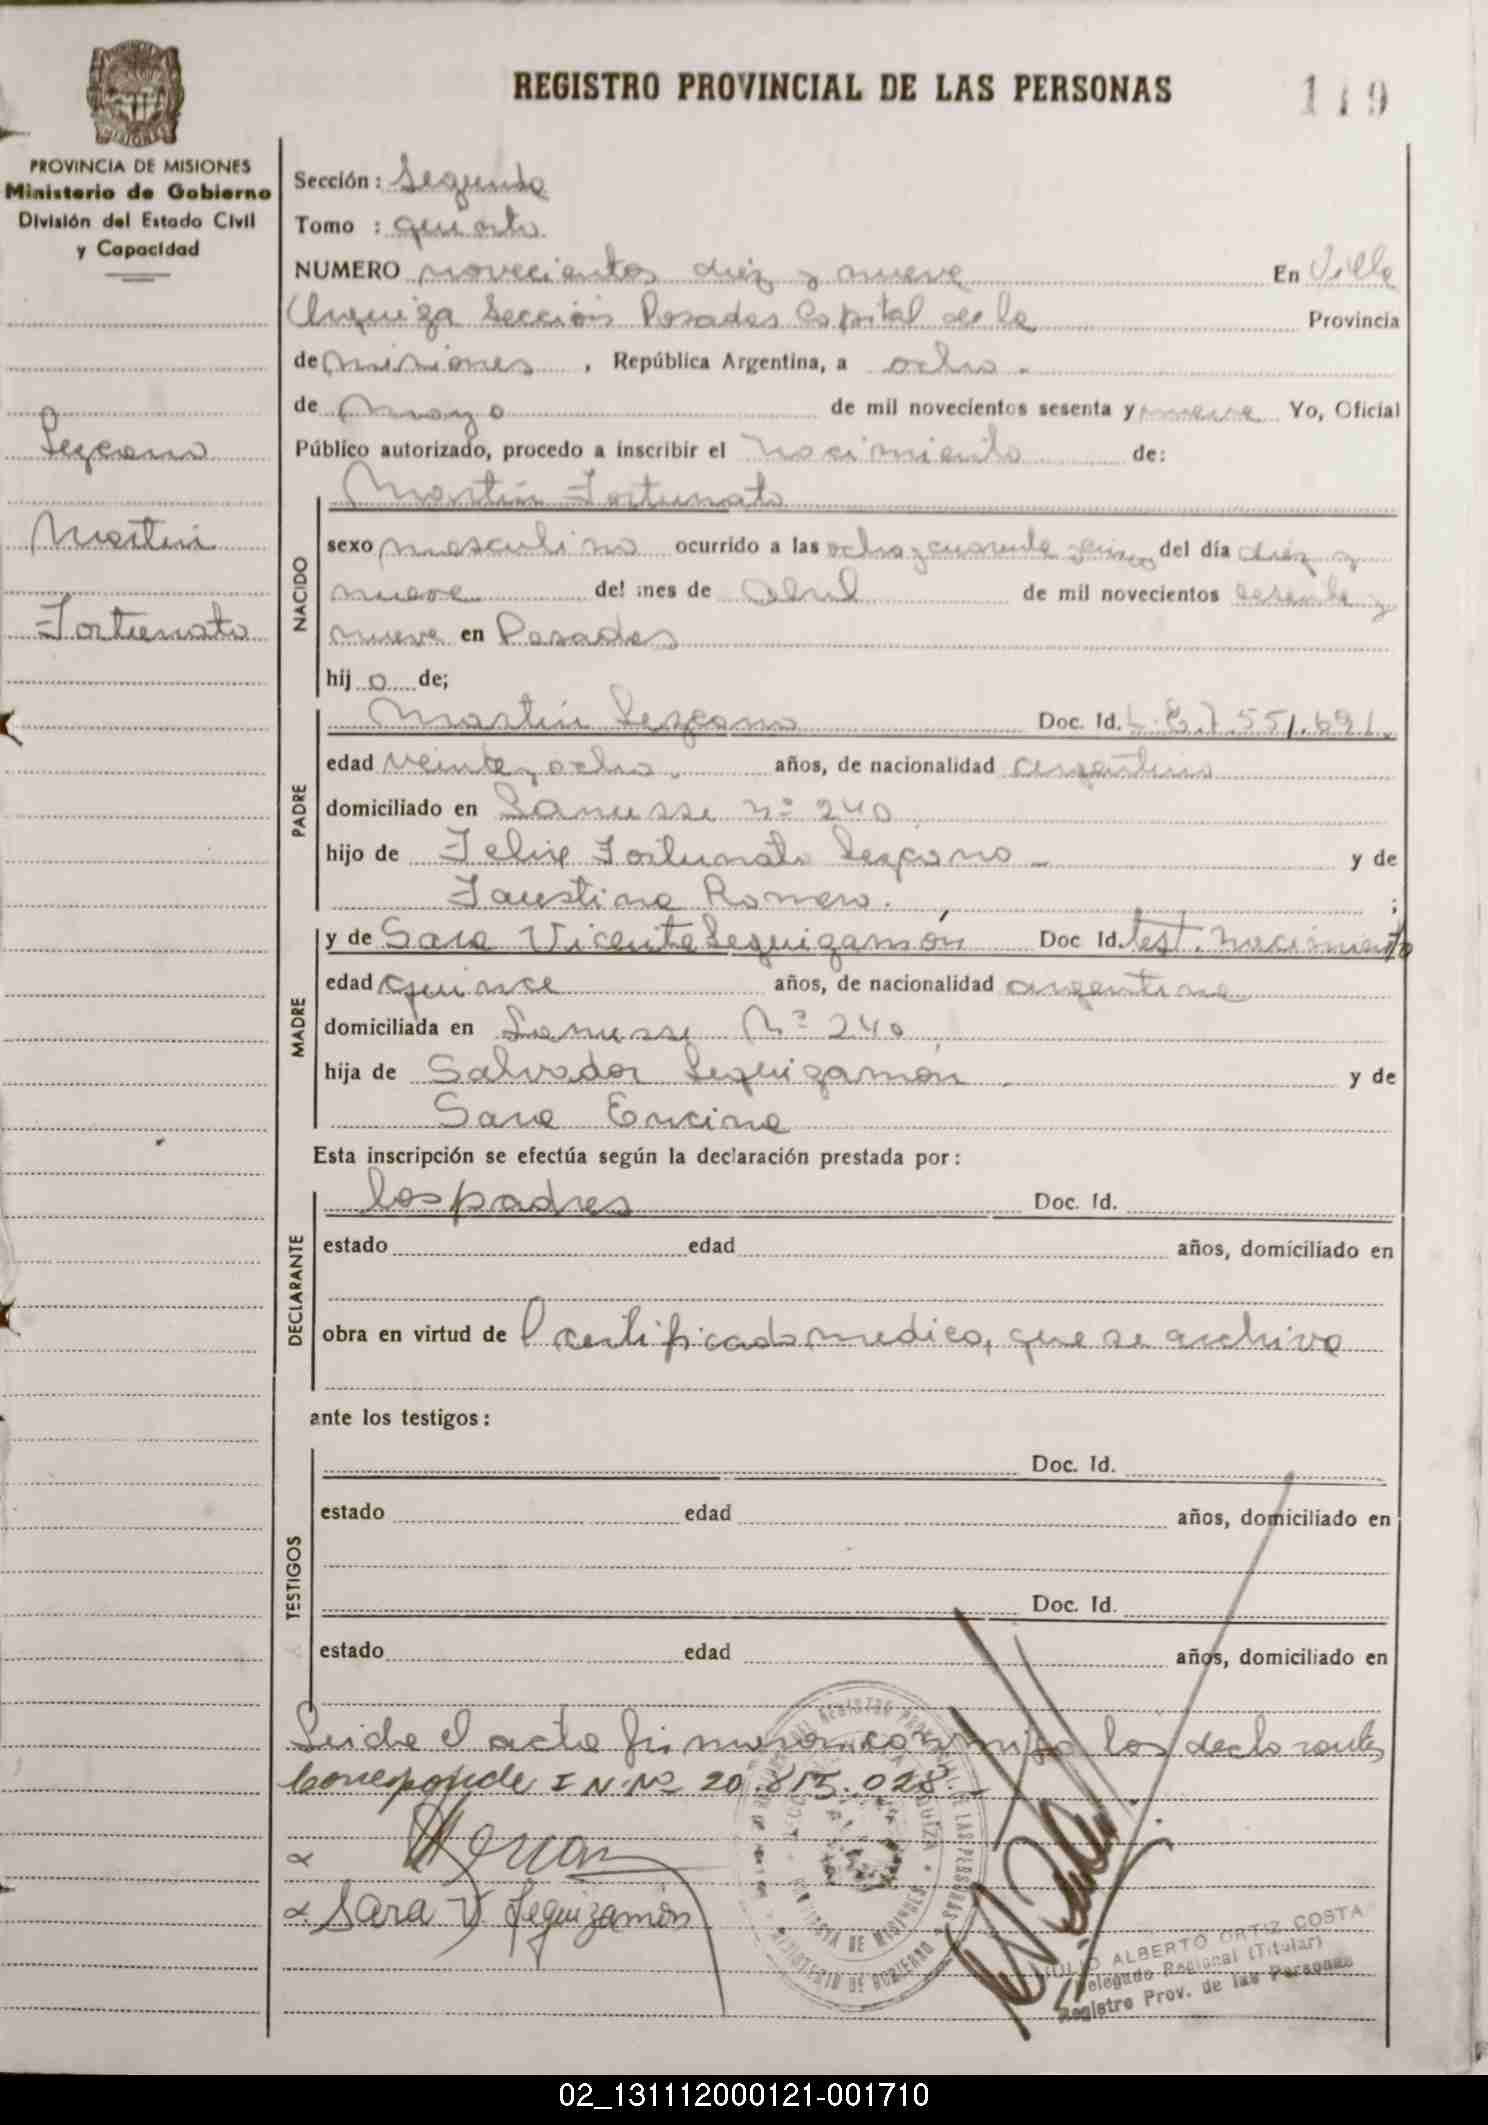 REGISTRO PROVINCIAL DE LAS PERSONAS
119
MISIONES
PROVINCIA DE MISIONES
Ministerio de Gobierno
División del Estado Civil
y Capacidad
Lezcano
Martin
Fortunato
Sección: Segunda
Tomo : quinto
NUMERO novecientos diez y nueve En Villa
Urquiza Sección Posadas Capital de la Provincia
de Misiones , República Argentina, a ocho
de Mayo de mil novecientos sesenta y nueve Yo, Oficial
Público autorizado, procedo a inscribir el nacimiento de:
NACIDO
Martin Fortunato
sexo masculino ocurrido a las ocho y cuarenta y cinco del día diez y
nueve del mes de Abril de mil novecientos sesenta y
nueve en Posadas
hij o de;
PADRE
Martin Lezcano Doc. Id. L.E. 7.551.691.
edad veinte y ocho. años, de nacionalidad argentino
domiciliado en Lanusse nº 240
hijo de Felix Fortunato Lezcano y de
Faustina Romero. ;
MADRE
y de Sara Vicenta Leguizamón Doc Id. test. nacimiento
edad quince años, de nacionalidad argentina
domiciliada en Lanusse Nº 240
hija de Salvador Leguizamón y de
Sara Encina
Esta inscripción se efectúa según la declaración prestada por:
DECLARANTE
los padres Doc. Id.
estado edad años, domiciliado en
obra en virtud de l certificado medico, que se archiva
ante los testigos:
TESTIGOS
Doc. Id.
estado edad años, domiciliado en
Doc. Id.
estado edad años, domiciliado en
Leida el acta firmaron conmigo los declarantes
Corresponde I N. Nº 20.815.028.-
Sara V. Leguizamón
PROVINCIA DE MISIONES
MINISTERIO DE GOBIERNO
JULIO ALBERTO ORTIZ COSTA
Delegado Regional (Titular)
Registro Prov. de las Personas
02_131112000121-001710